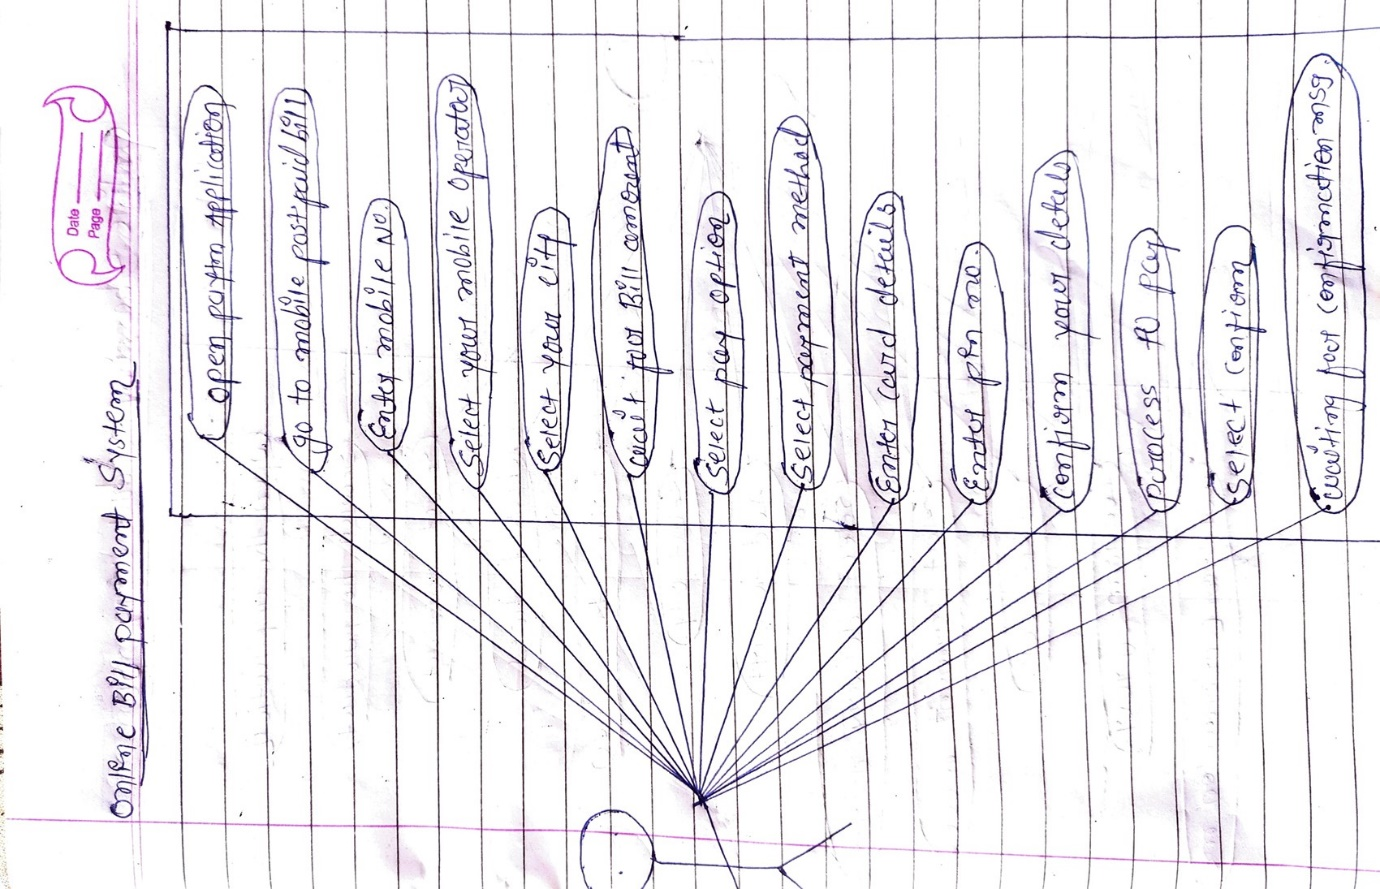 Date
Page
Online Bill payment System
open paytm Application
go to mobile postpaid bill
Enter mobile No.
Select your mobile operator
Select your city
wait for Bill amount
Select pay option
Select payment method
Enter card details
Enter pin no.
Confirm your details
Process to pay
Select confirm
waiting for confirmation msg.